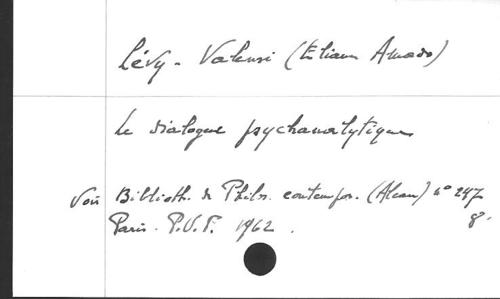 Lévy-Valensi (Eliane Amado)
Le dialogue psychanalytique
Voir Biblioth. de Philos. contempor. (Alcan) n° 247
Paris. P.U.F. 1962. 8°